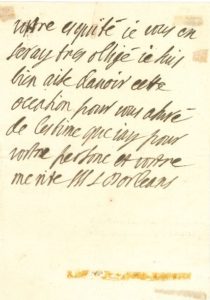 vostre equité ie vous en
seray tres obligé ie suis
bien aise davoir cette
occasion pour vous asuré
de lestime que iay pour
vostre persone et vostre
merite M L Dorleans